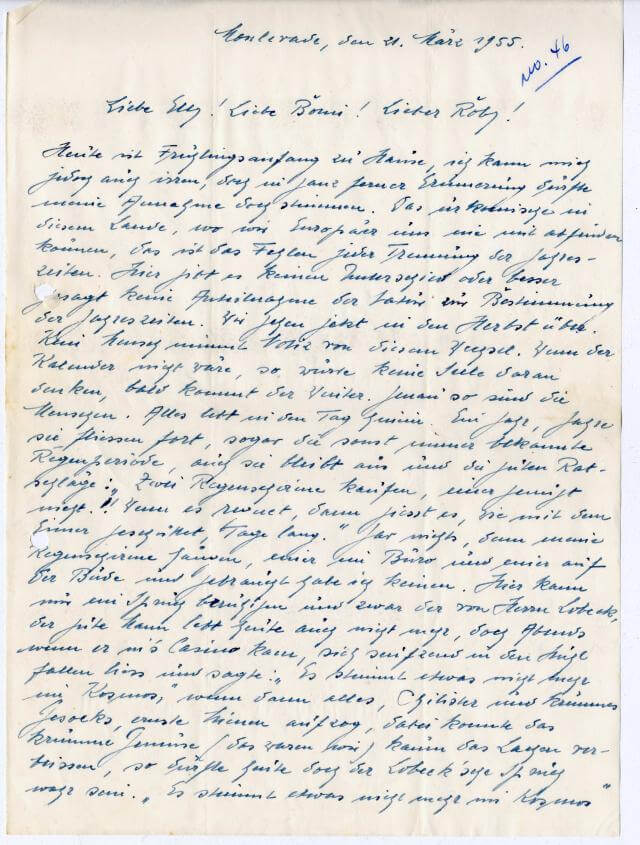 Monlevade, den 21. März 1955.
no. 46
Liebe Elly! Liebe Bömi! Lieber Röby!
Heute ist Frühlingsanfang zu Hause, ich kann mich
jedoch auch irren, doch in ganz ferner Erinnerung dürfte
meine Annahme doch stimmen. Das urkomische in
diesem Lande, wo wir Europäer uns nie mit abfinden
können, das ist das Fehlen jeder Trennung der Jahres-
zeiten. Hier gibt es keinen Unterschied oder besser
gesagt keine Anteilnahme der Natur zur Bestimmung
der Jahreszeiten. Wir gehen jetzt in den Herbst über.
Kein Mensch nimmt Notiz von diesem Wechsel. Wenn der
Kalender nicht wäre, so würde keine Seele daran
denken, bald kommt der Winter. Genau so sind die
Menschen. Alles lebt in den Tag hinein. Ein Jahr, Jahre
sie fliessen fort, sogar die sonst immer bekannte
Regenperiode, auch sie bleibt aus und die guten Rat-
schläge: „Zwei Regenschirme kaufen, einer genügt
nicht!! Wenn es regnet, dann giesst es, wie mit dem
Eimer geschüttet, Tage lang." Gar nichts, denn meine
Regenschirme hängen, einer im Büro und einer auf
der Bude und gebraucht habe ich keinen. Hier kann
nur ein Spruch beruhigen und zwar der von Herrn Lobeck,
der gute Mann lebt heute auch nicht mehr, doch Abends
wenn er in's Casino kam, sich seufzend in den Stuhl
fallen liess und sagte: „Es stimmt etwas nicht mehr
im Kozmos," wenn dann alles, Philister und krummes
Gesocks, ernste Mienen aufzog, dabei konnte das
krumme Gemüse (das waren wir) kaum das Lachen ver-
beissen, so dürfte heute doch der Lobeck'sche Spruch
wahr sein. „Es stimmt etwas nicht mehr im Kozmos"